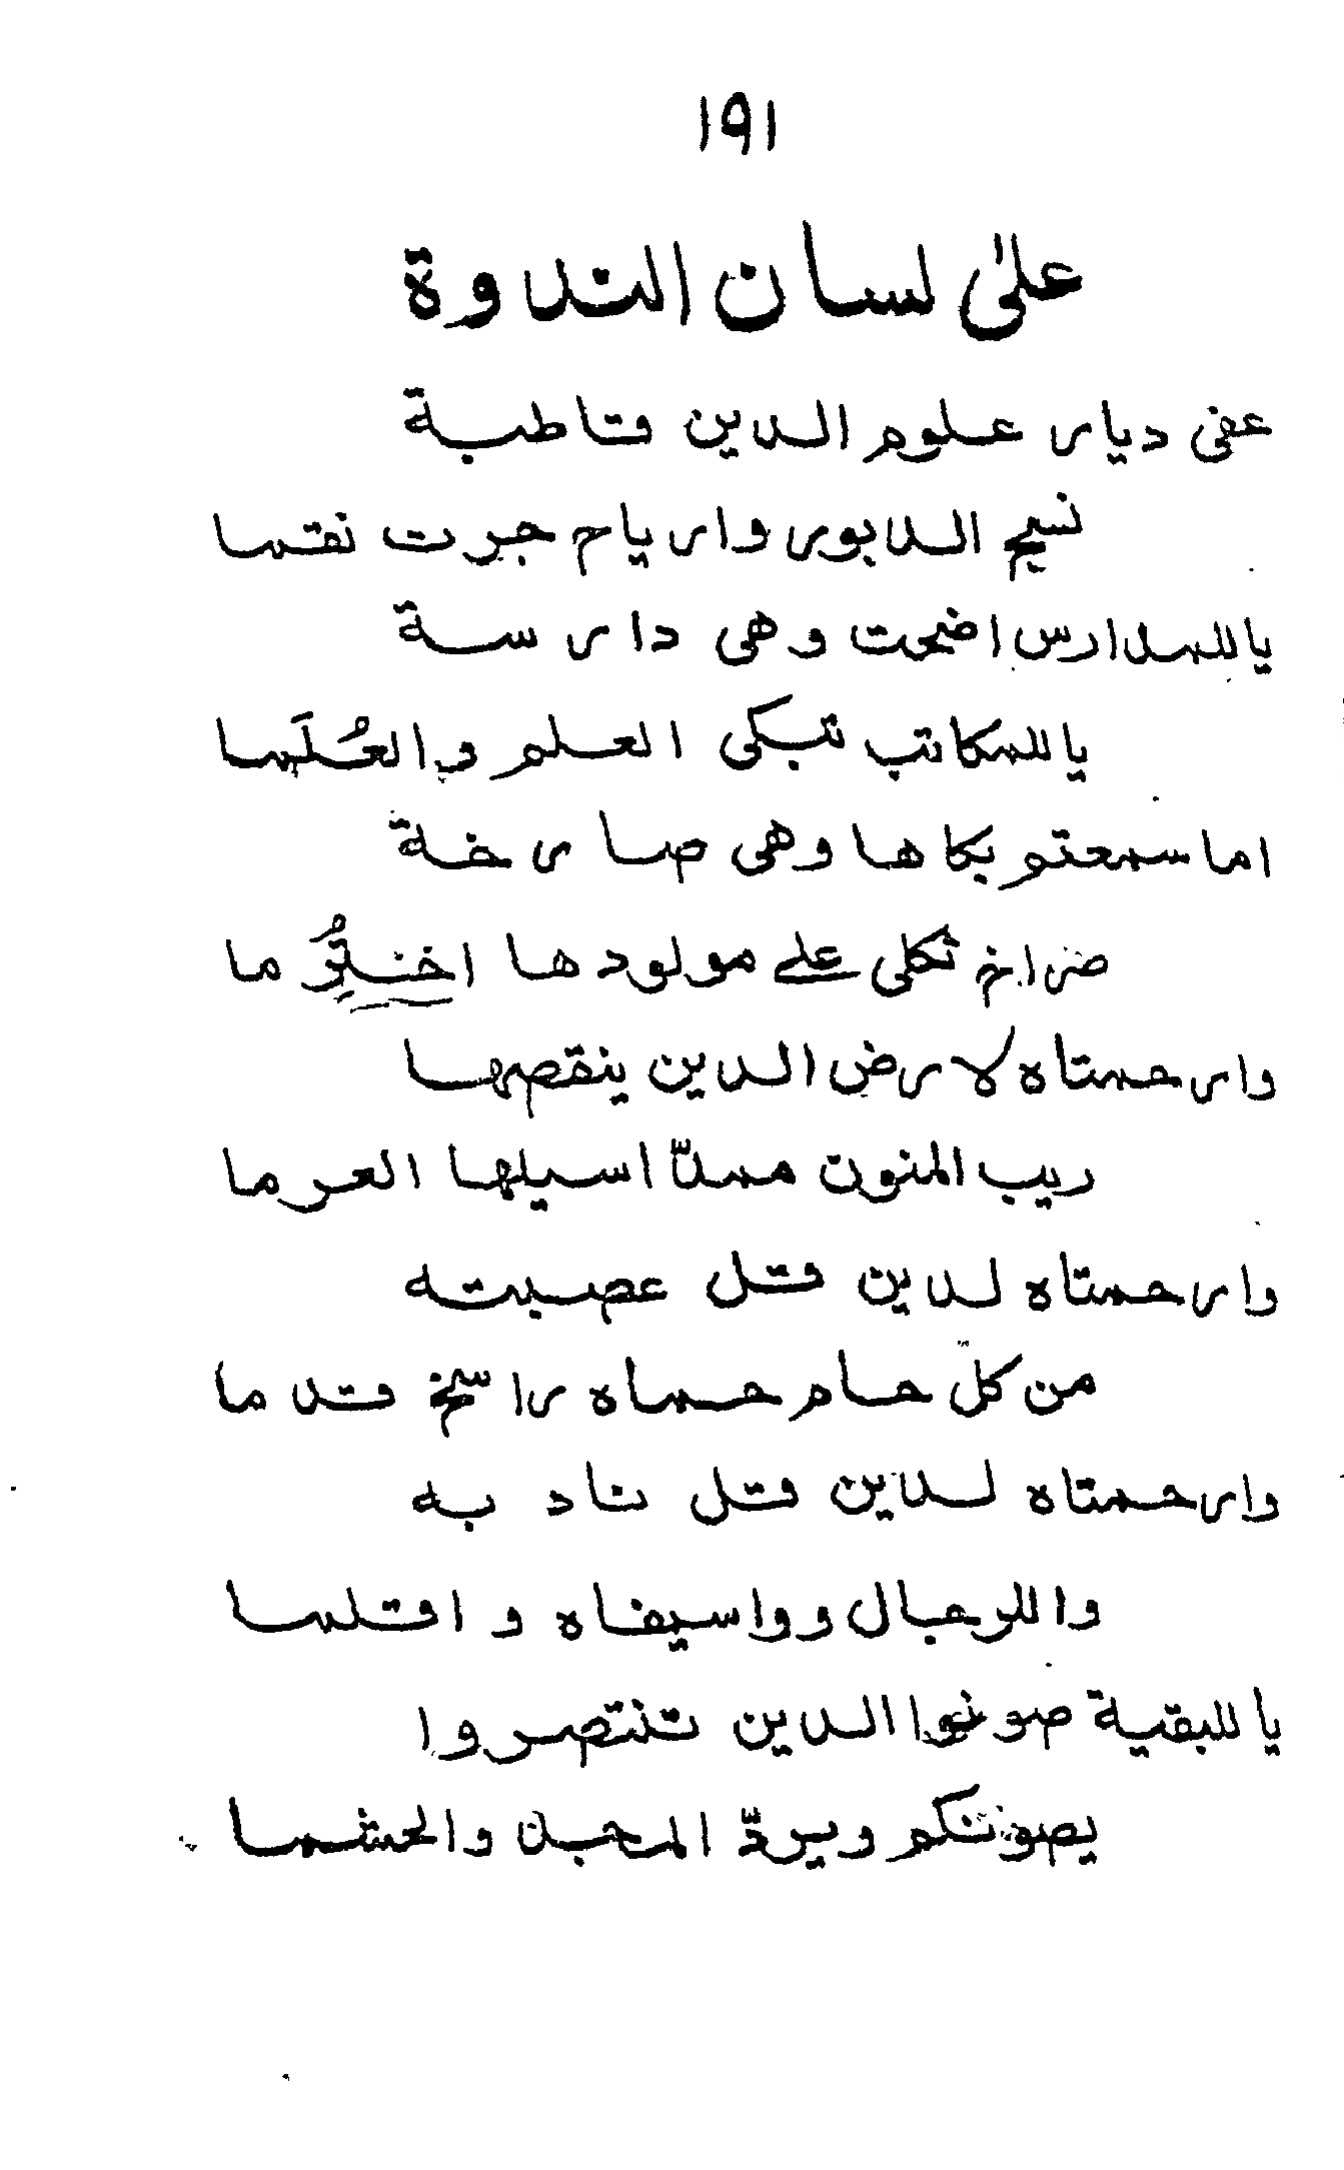 ١٩١
علىٰ لسان الندوة
عفى ديار علوم الدين قاطبة
نسيم الدبور وارياح جرت نقما
ياللمدارس اضحت وهى دارسة
ياللمكاتب تبكى العلم والعُلَما
اما سمعتم بكاها وهى صارخة
صراخ ثكلى على مولودها اختُرِما
وارحمتاه لارض الدين ينقصها
ريب المنون مسدّا سيلها العرما
وارحمتاه لدين قل عصبته
من كل حام حماه راسخ قدما
وارحمتاه لدين قل نادبه
واللرجال وواسيفاه واقلما
ياللبقية صونوا الدين تنتصروا
يصونكم ويردّ المجد والحشما